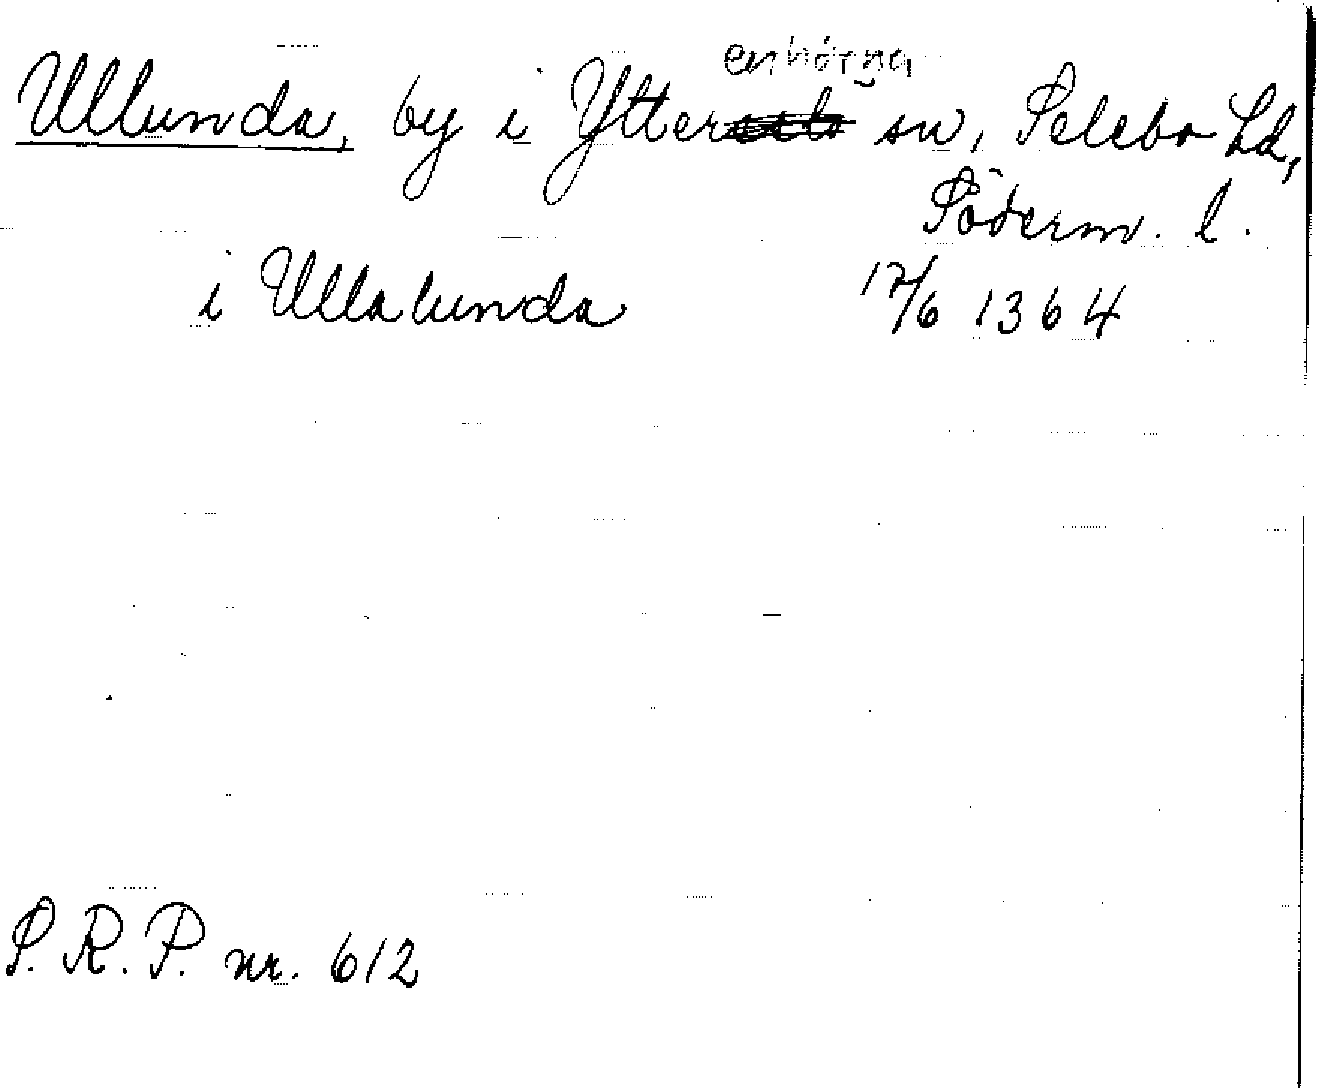 Ullunda, by i Ytterenhörna sn, Selebo hd,
Söderm. l.
i Ullalunda 17/6 1364
S. R. P. nr. 612